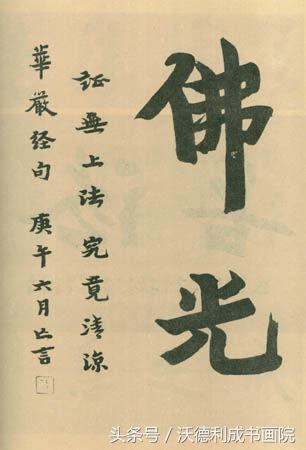 佛光
証無上法究竟清涼
華嚴経句 庚午六月亡言
头条号/沃德利成书画院